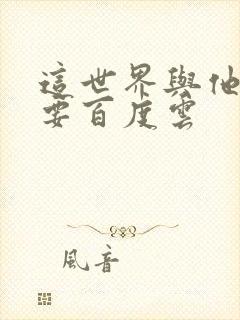 這世界與他
要百度雲
風音